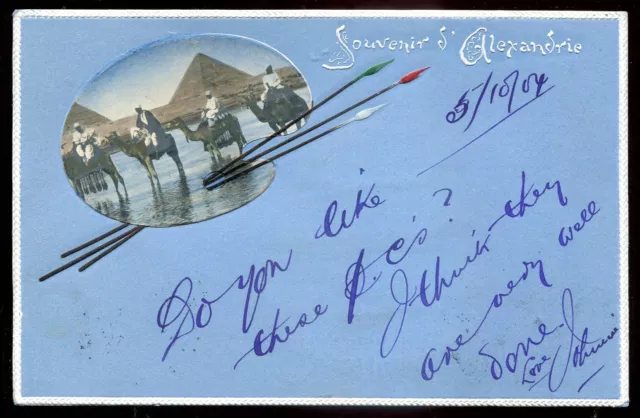 Souvenir d'Alexandrie
5/10/04
Do you like
these P.C's?
I think they
are very well
done.
Love Johnnie